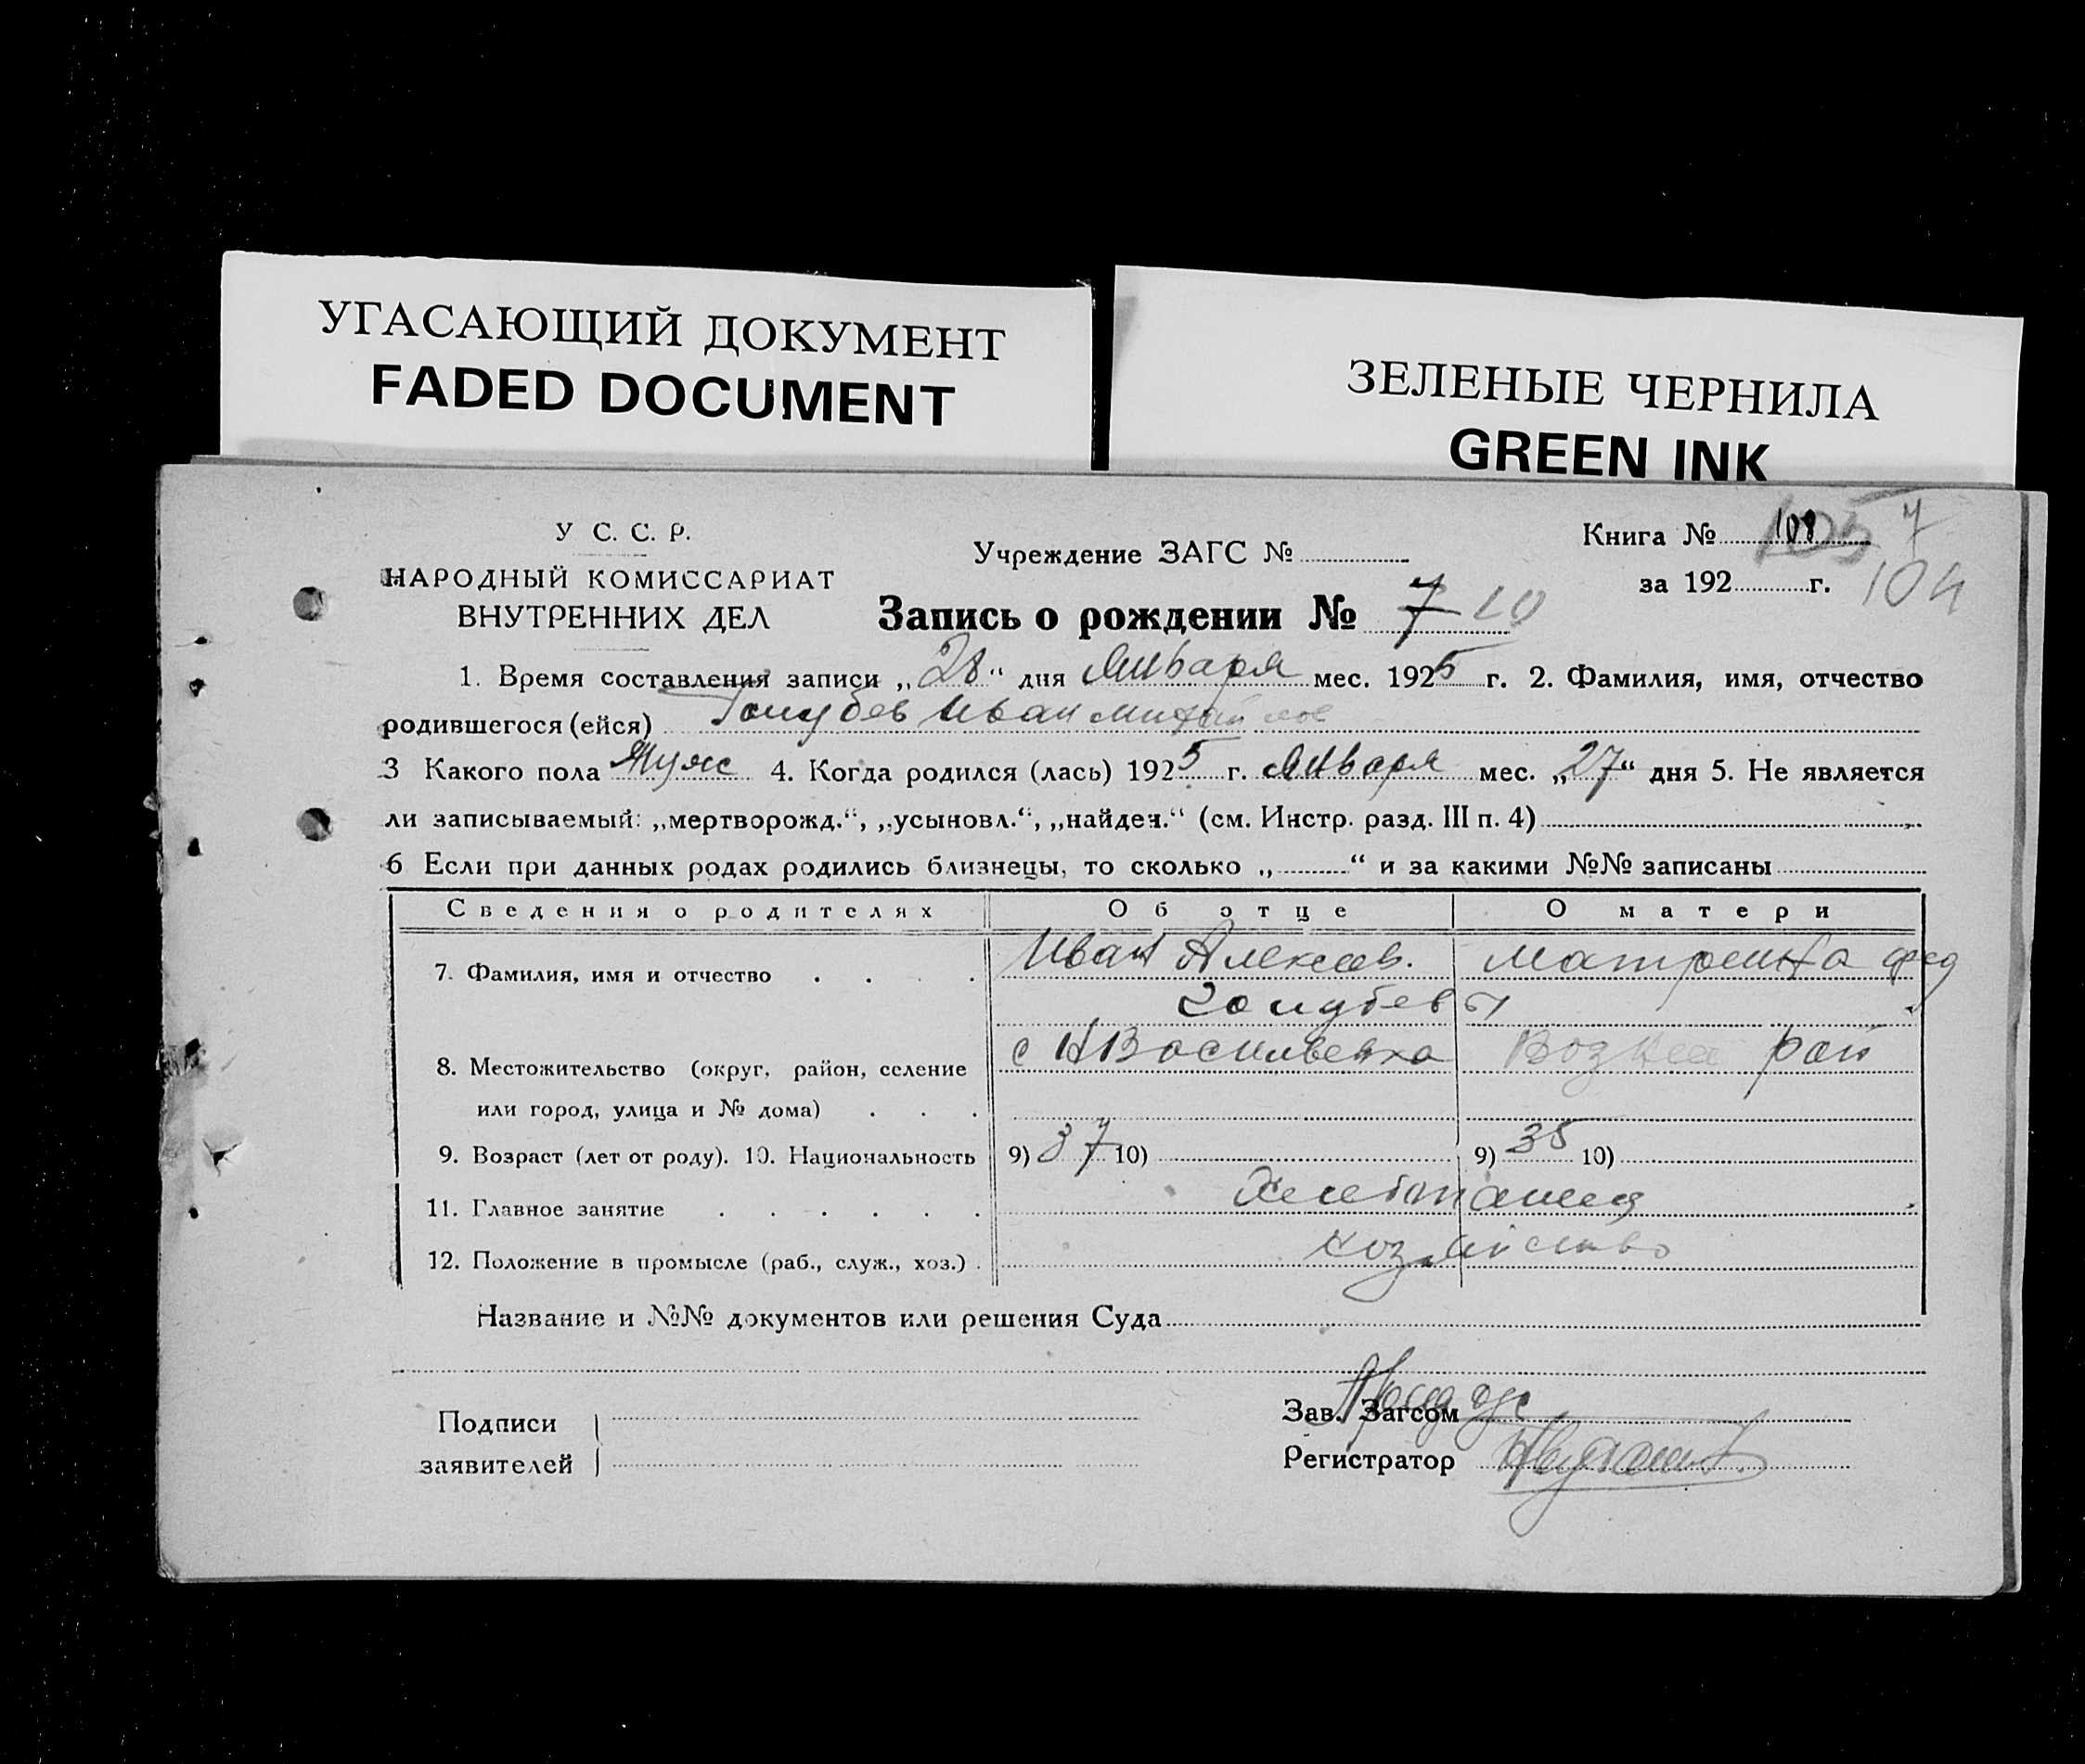 УГАСАЮЩИЙ ДОКУМЕНТ
FADED DOCUMENT
ЗЕЛЕНЫЕ ЧЕРНИЛА
GREEN INK
У С. С. Р.
НАРОДНЫЙ КОМИССАРИАТ
ВНУТРЕННИХ ДЕЛ
Учреждение ЗАГС №
Книга № 108 105 7
за 192 г. 104
Запись о рождении № 7 10
1. Время составления записи „28“ дня Января мес. 1925 г. 2. Фамилия, имя, отчество
родившегося (ейся) Голубев Иван
3 Какого пола Муж 4. Когда родился (лась) 1925 г. Января мес. „27“ дня 5. Не является
ли записываемый: „мертворожд.“, „усыновл.“, „найден.“ (см. Инстр. разд. III п. 4)
6 Если при данных родах родились близнецы, то сколько „ “ и за какими №№ записаны
Сведения о родителях Об отце О матери
7. Фамилия, имя и отчество Иван Алексеев. Матрена Фед
Голубевы
8. Местожительство (округ, район, селение с НВасильевка рай
или город, улица и № дома)
9. Возраст (лет от роду). 10. Национальность 9) 37 10) 9) 35 10)
11. Главное занятие Хлебопашец
12. Положение в промысле (раб., служ., хоз.) хозяйство
Название и №№ документов или решения Суда
Подписи
заявителей
Зав. Загсом
Регистратор